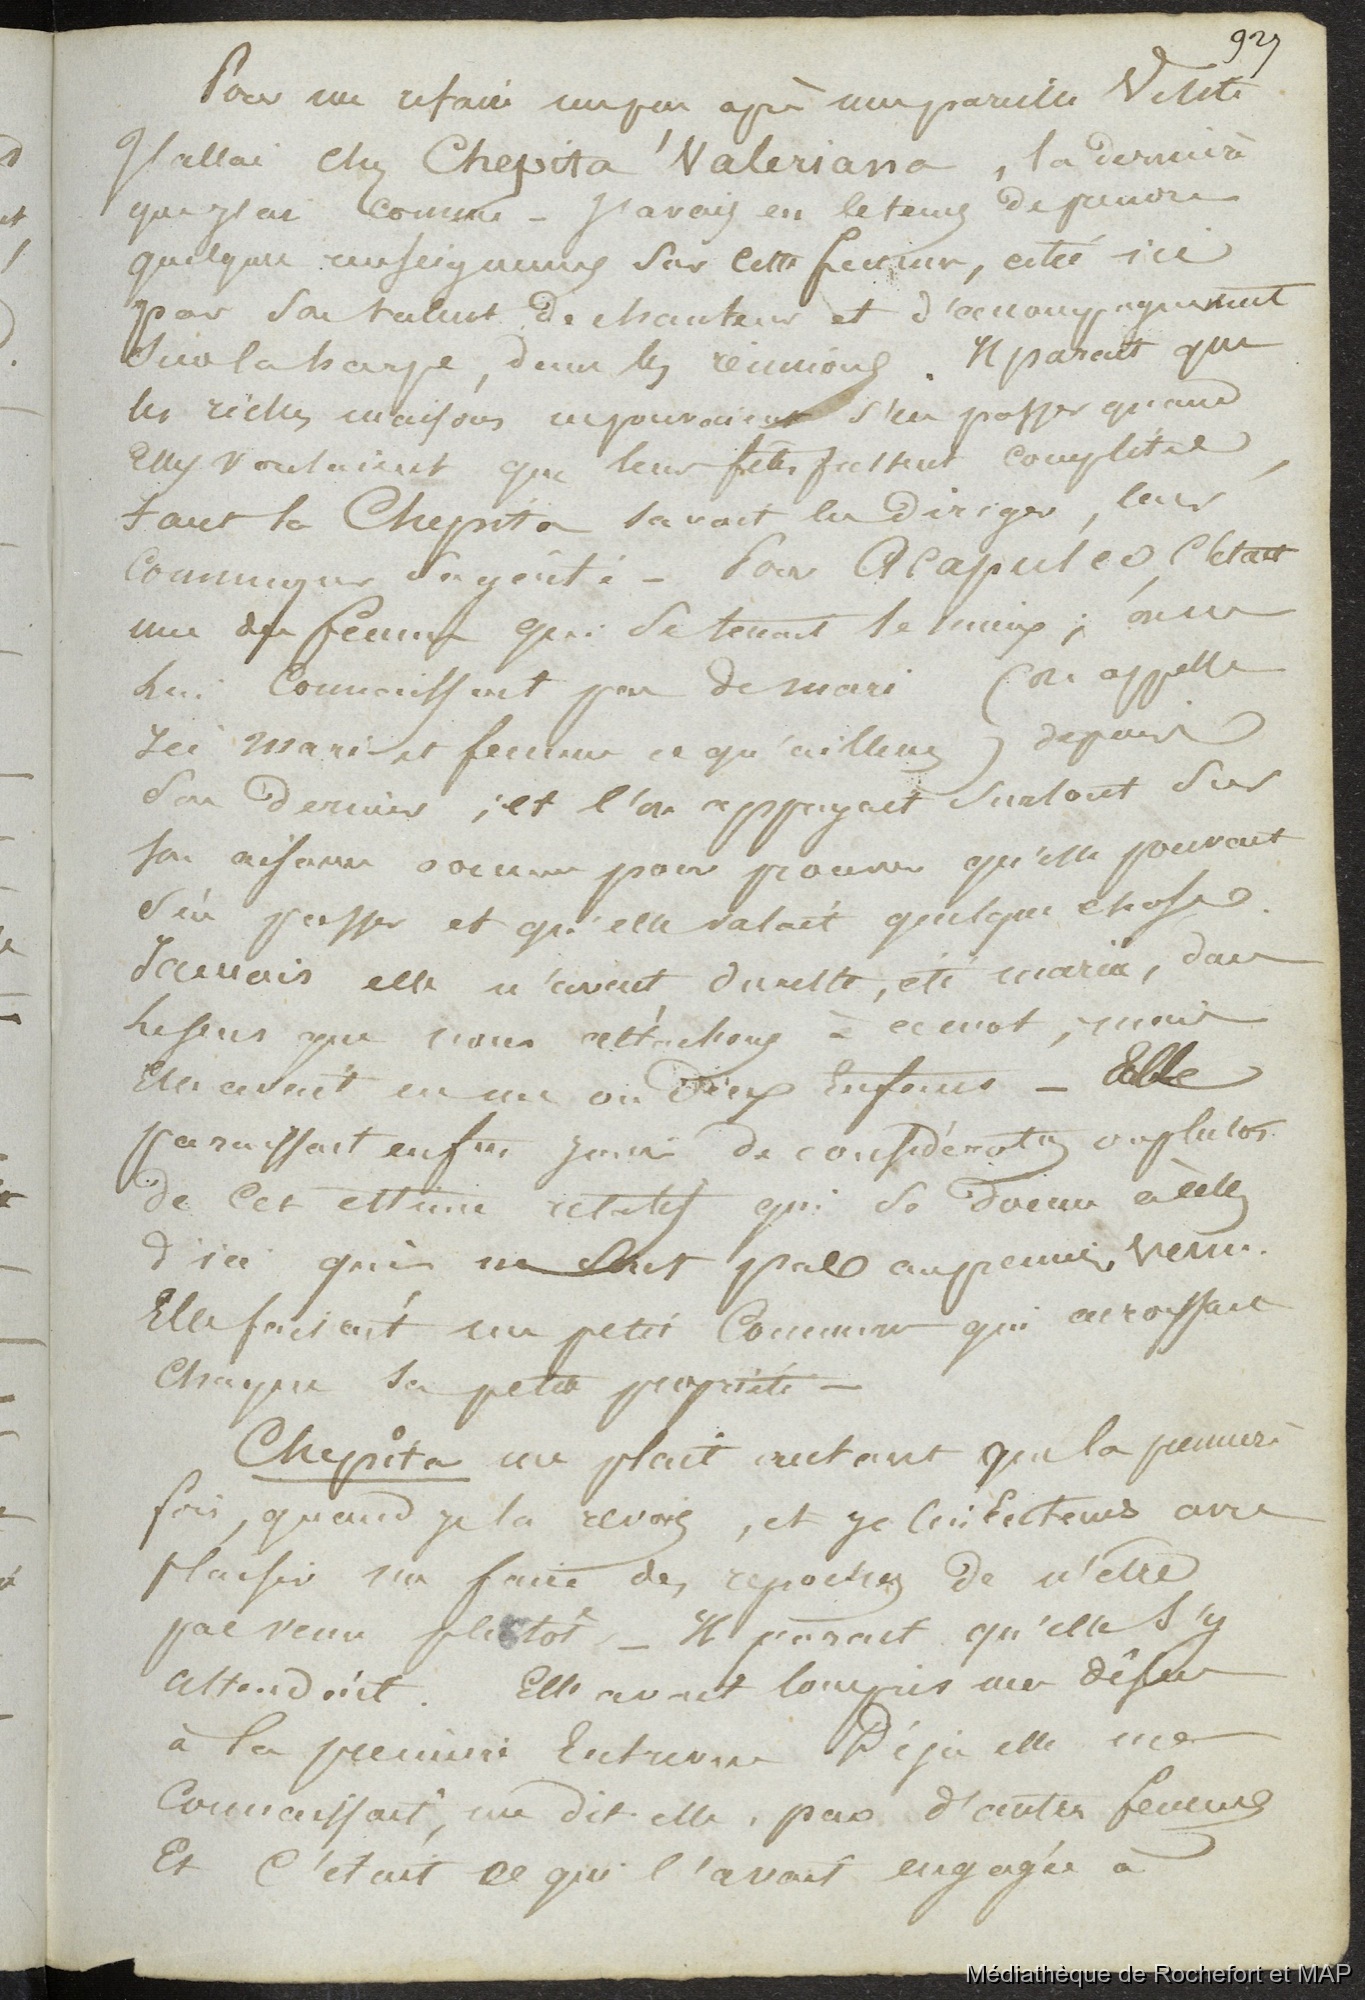 927
Pour me refaire un peu après une pareille Visite
J'allai chez Chepita Valeriana, la dernière
que j'ai connue - J'avais eu le tems de prendre
quelques renseignemens sur cette femme, citée ici
par son talent de chanteur et d'accompagnement
sur la harpe, dans les réunions. Il parait que
les riches maisons ne pouvaient s'en passer quand
Elles voulaient que leurs fêtes fussent complètes,
tant la Chepita savait les diriger, leur
communiquer sa gaité - Pour Acapulco, c'était
une des femmes qui se tenait le mieux; on ne
lui connaissait pas de mari (on appelle
Ici mari et femme ce qu'ailleurs) depuis
son dernier; et l'on appuyait surtout sur
son aisance comme pour prouver qu'elle pouvait
s'en passer et qu'elle valait quelque chose.
Jamais elle n'avait du reste, été mariée, dans
le sens que nous attachons à ce mot, mais
Elle avait eu un ou deux Enfans - Elle
paraissait enfin jouir de considération ou plutôt
de cet estime relatif qui se donne à celles
d'ici qui ne sont pas au premier venu.
Elle faisait un petit Commerce qui accroissait
chaque sa petite propriété -
Chepita me plait autant que la première
fois, quand je la revois, et je l'entends avec
plaisir me faire des reproches de n'être
pas venu plutôt - Il parait qu'elle s'y
attendait. Elle avait compris mes désirs
à la première Entrevue Déjà elle me
connaissait, me dit elle, par d'autres femmes
Et c'était ce qui l'avait engagée à
Médiathèque de Rochefort et MAP